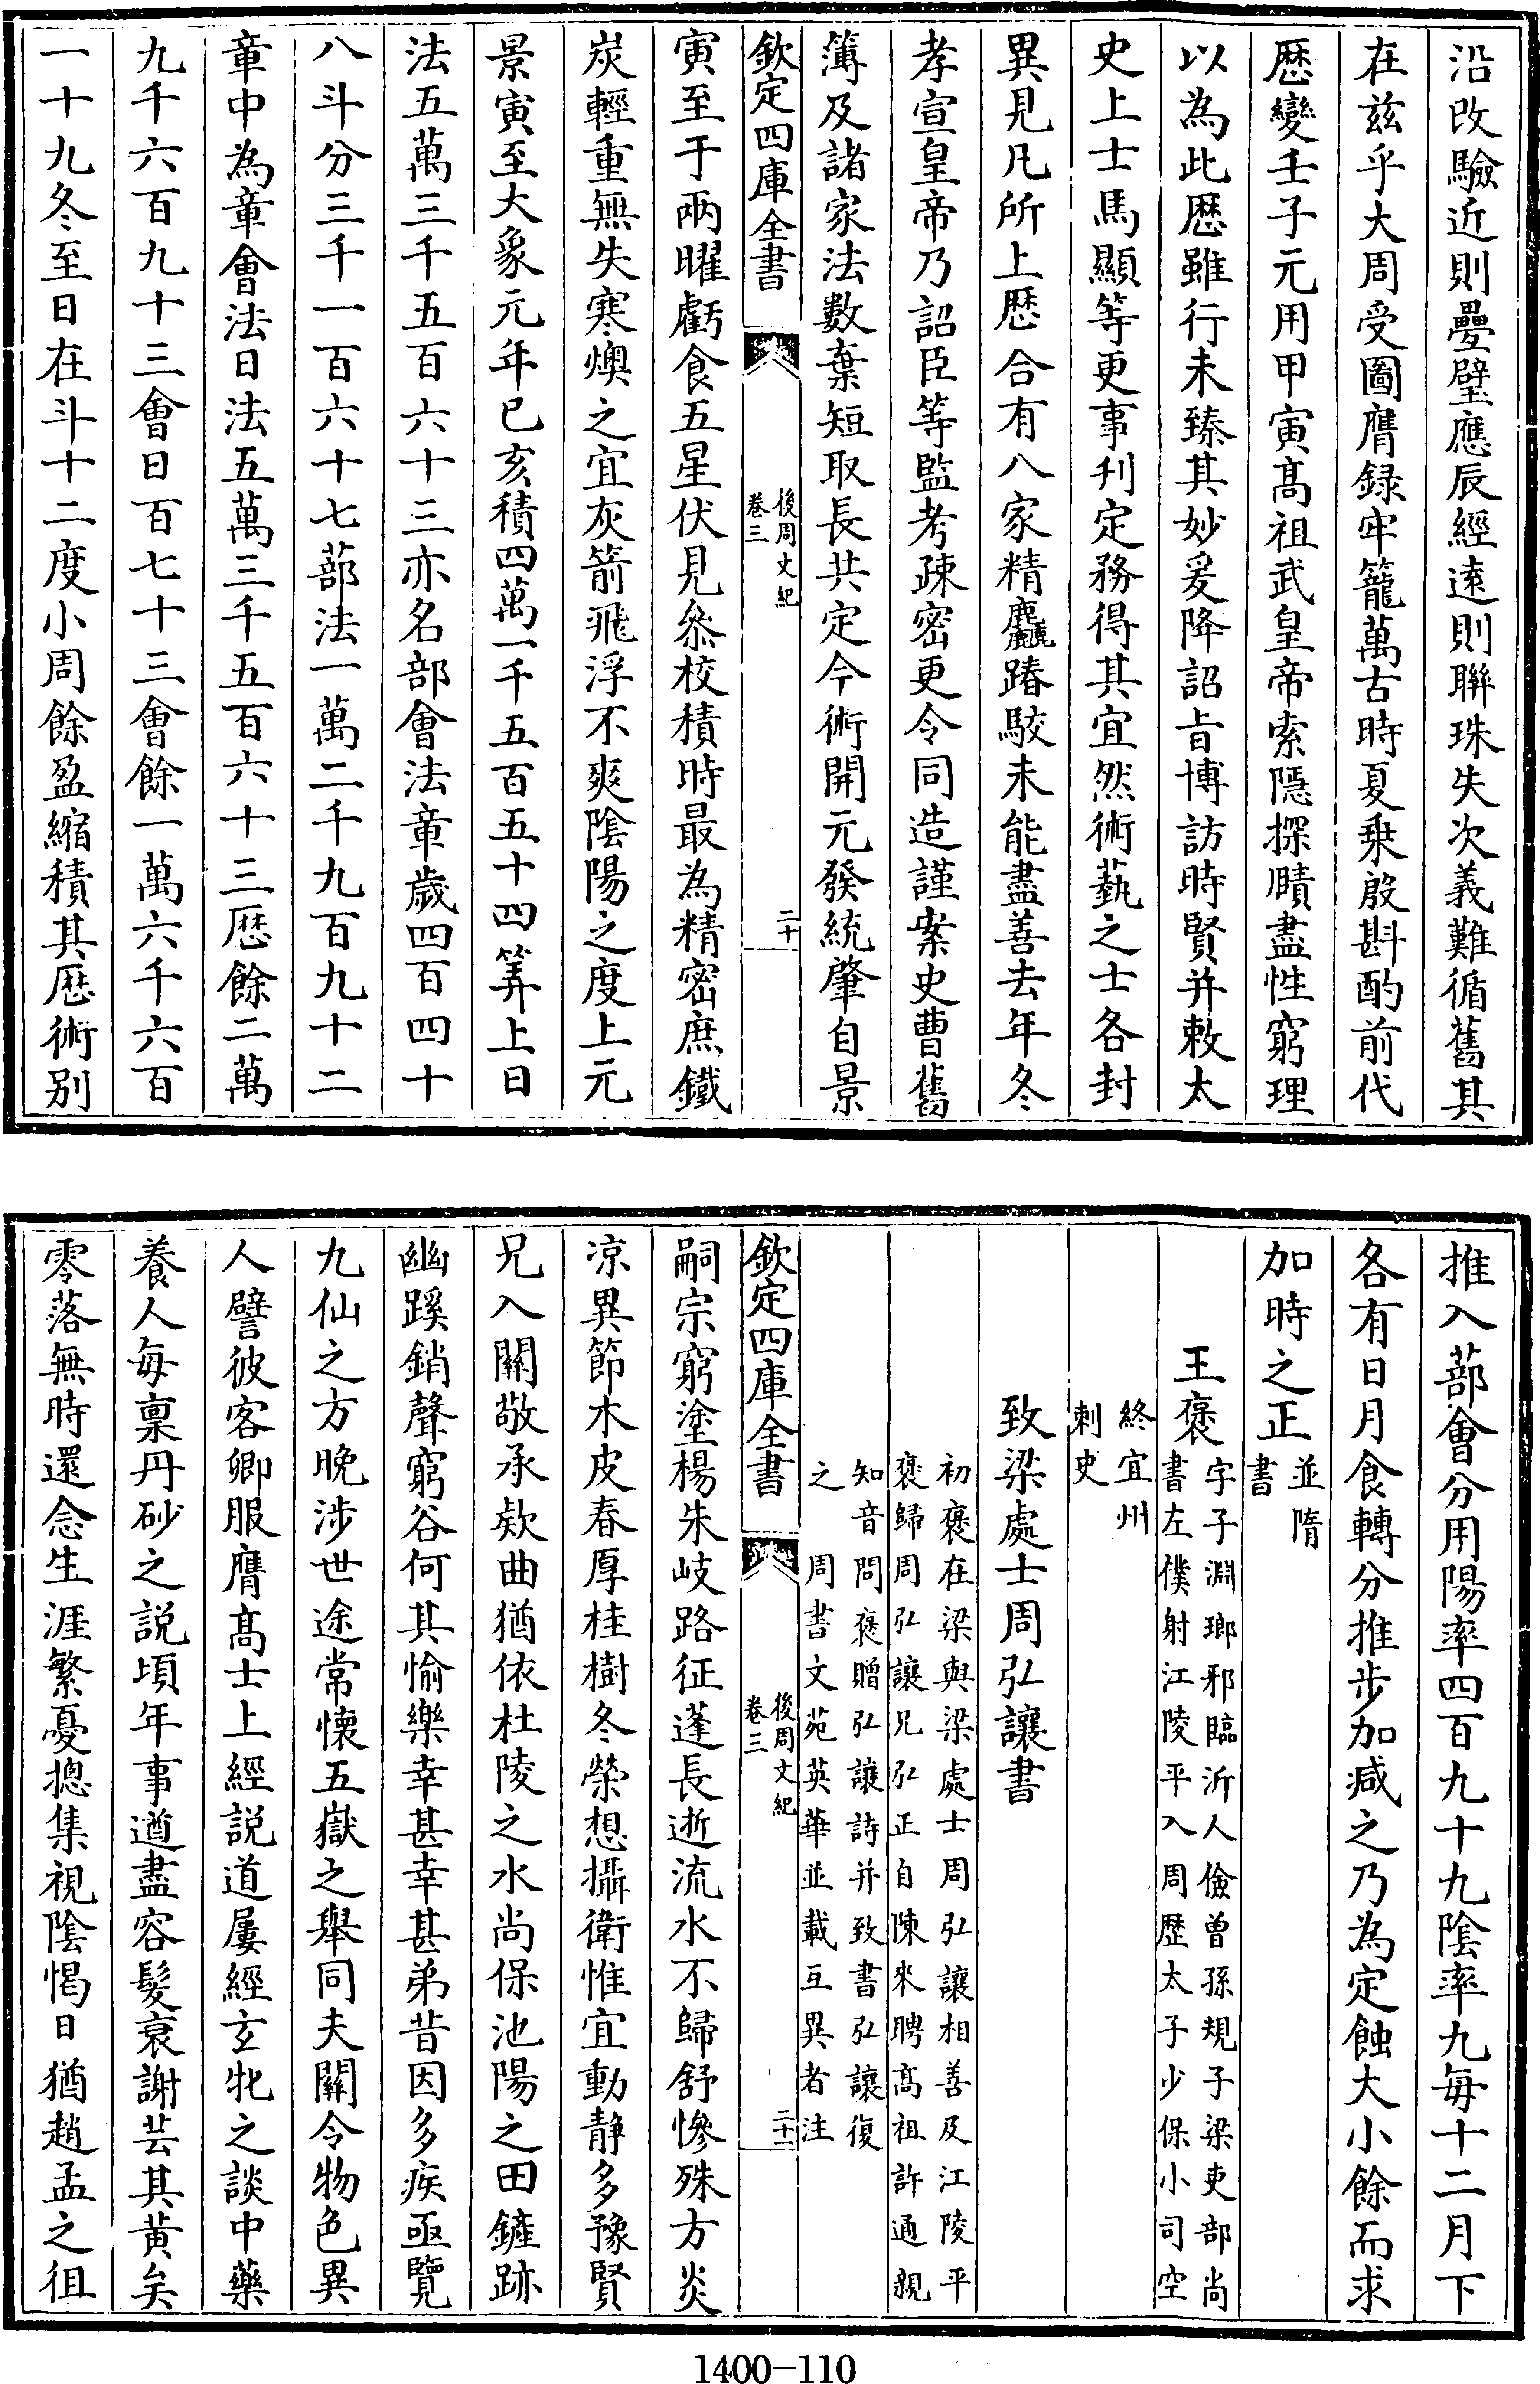 沿改驗近則疊璧應辰經逺則聯珠失次義難循舊其
在兹乎大周受圖膺録牢籠萬古時夏乗殷斟酌前代
厯變壬子元用甲寅髙祖武皇帝索隠探賾盡性窮理
以為此厯雖行未臻其妙爰降詔旨博訪時賢并敕太
史上士馬顯等更事刋定務得其宜然術蓺之士各封
異見凡所上厯合有八家精麤踳駮未能盡善去年冬
孝宣皇帝乃詔臣等監考疎宻更令同造謹案史曹舊
簿及諸家法數棄短取長共定今術開元發統肇自景
欽定四庫全書
後周文紀
卷三
二十
寅至于兩曜虧食五星伏見叅校積時最為精宻庶鐵
炭輕重無失寒燠之宜灰箭飛浮不爽隂陽之度上元
景寅至大象元年已亥積四萬一千五百五十四筭上日
法五萬三千五百六十三亦名部會法章歲四百四十
八斗分三千一百六十七蔀法一萬二千九百九十二
章中為章會法日法五萬三千五百六十三厯餘二萬
九千六百九十三會日百七十三會餘一萬六千六百
一十九冬至日在斗十二度小周餘盈縮積其厯術别
推入蔀會分用陽率四百九十九隂率九毎十二月下
各有日月食轉分推步加减之乃為定蝕大小餘而求
加時之正並隋
書
王褒字子淵瑯邪臨沂人儉曽孫規子梁吏部尚
書左僕射江陵平入周歴太子少保小司空
終宜州
刺史
致梁處士周弘讓書
初褒在梁與梁處士周弘讓相善及江陵平
褒歸周弘讓兄弘正自陳来聘髙祖許通親
知音問褒贈弘讓詩并致書弘讓復
之　周書文苑英華並載互異者注
欽定四庫全書
後周文紀
卷三
二十一
嗣宗窮塗楊朱岐路征蓬長逝流水不歸舒慘殊方炎
凉異節木皮春厚桂樹冬榮想攝衛惟宜動静多豫賢
兄入關敬承欵曲猶依杜陵之水尚保池陽之田鏟跡
幽蹊銷聲窮谷何其愉樂幸甚幸甚弟昔因多疾亟覽
九仙之方晩涉世途常懐五嶽之舉同夫關令物色異
人譬彼客卿服膺髙士上經説道屢經玄牝之談中藥
養人毎禀丹砂之説頃年事遒盡容髮衰謝芸其黄矣
零落無時還念生涯繁憂摠集視隂愒日猶趙孟之徂
1400-110